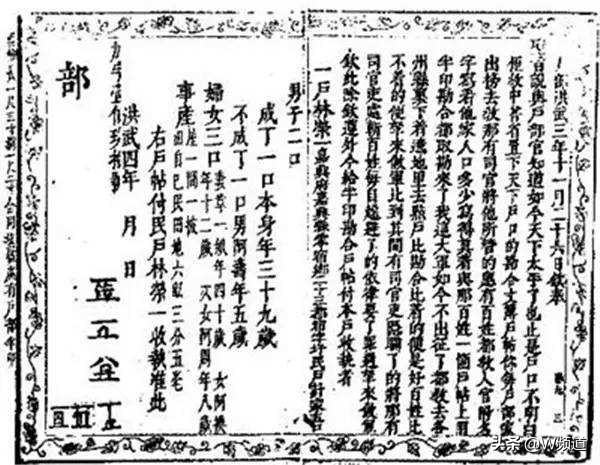 户部洪武三年十一月二十六日欽奉
聖旨說與戶部官知道如今天下太平了也止是戶口不明白
俚教中書省置下天下戶口的勘合文簿戶帖你每戶部家
出榜去教那有司官將他所管的應有百姓都教入官附名
字寫着他家人口多少寫得真着與那百姓一箇戶帖上用
半印勘合都取勘來了我這大軍如今不出征了都教去各
州縣裏下着遶地里去點戶比勘合比着的便是好百姓比
不着的便拏來做軍比到其間有司官吏隱瞞了的將那有
司官吏處斬百姓每自趓避了的依律要了罪過拏來做軍
欽此除欽遵外今給半印勘合戶帖付本戶收執者
一戶林榮一嘉興府嘉興縣
男子二口
成丁一口本身年三十九歲
不成丁一口男阿壽年五歲
婦女三口
妻
年四十歲
女阿
年十二歲
次女阿周年八歲
事產
屋一間一
田自己民田地六畝三分五毫
右戶帖付民戶林榮一收執准此
洪武四年 月 日
部
头条 @W频道